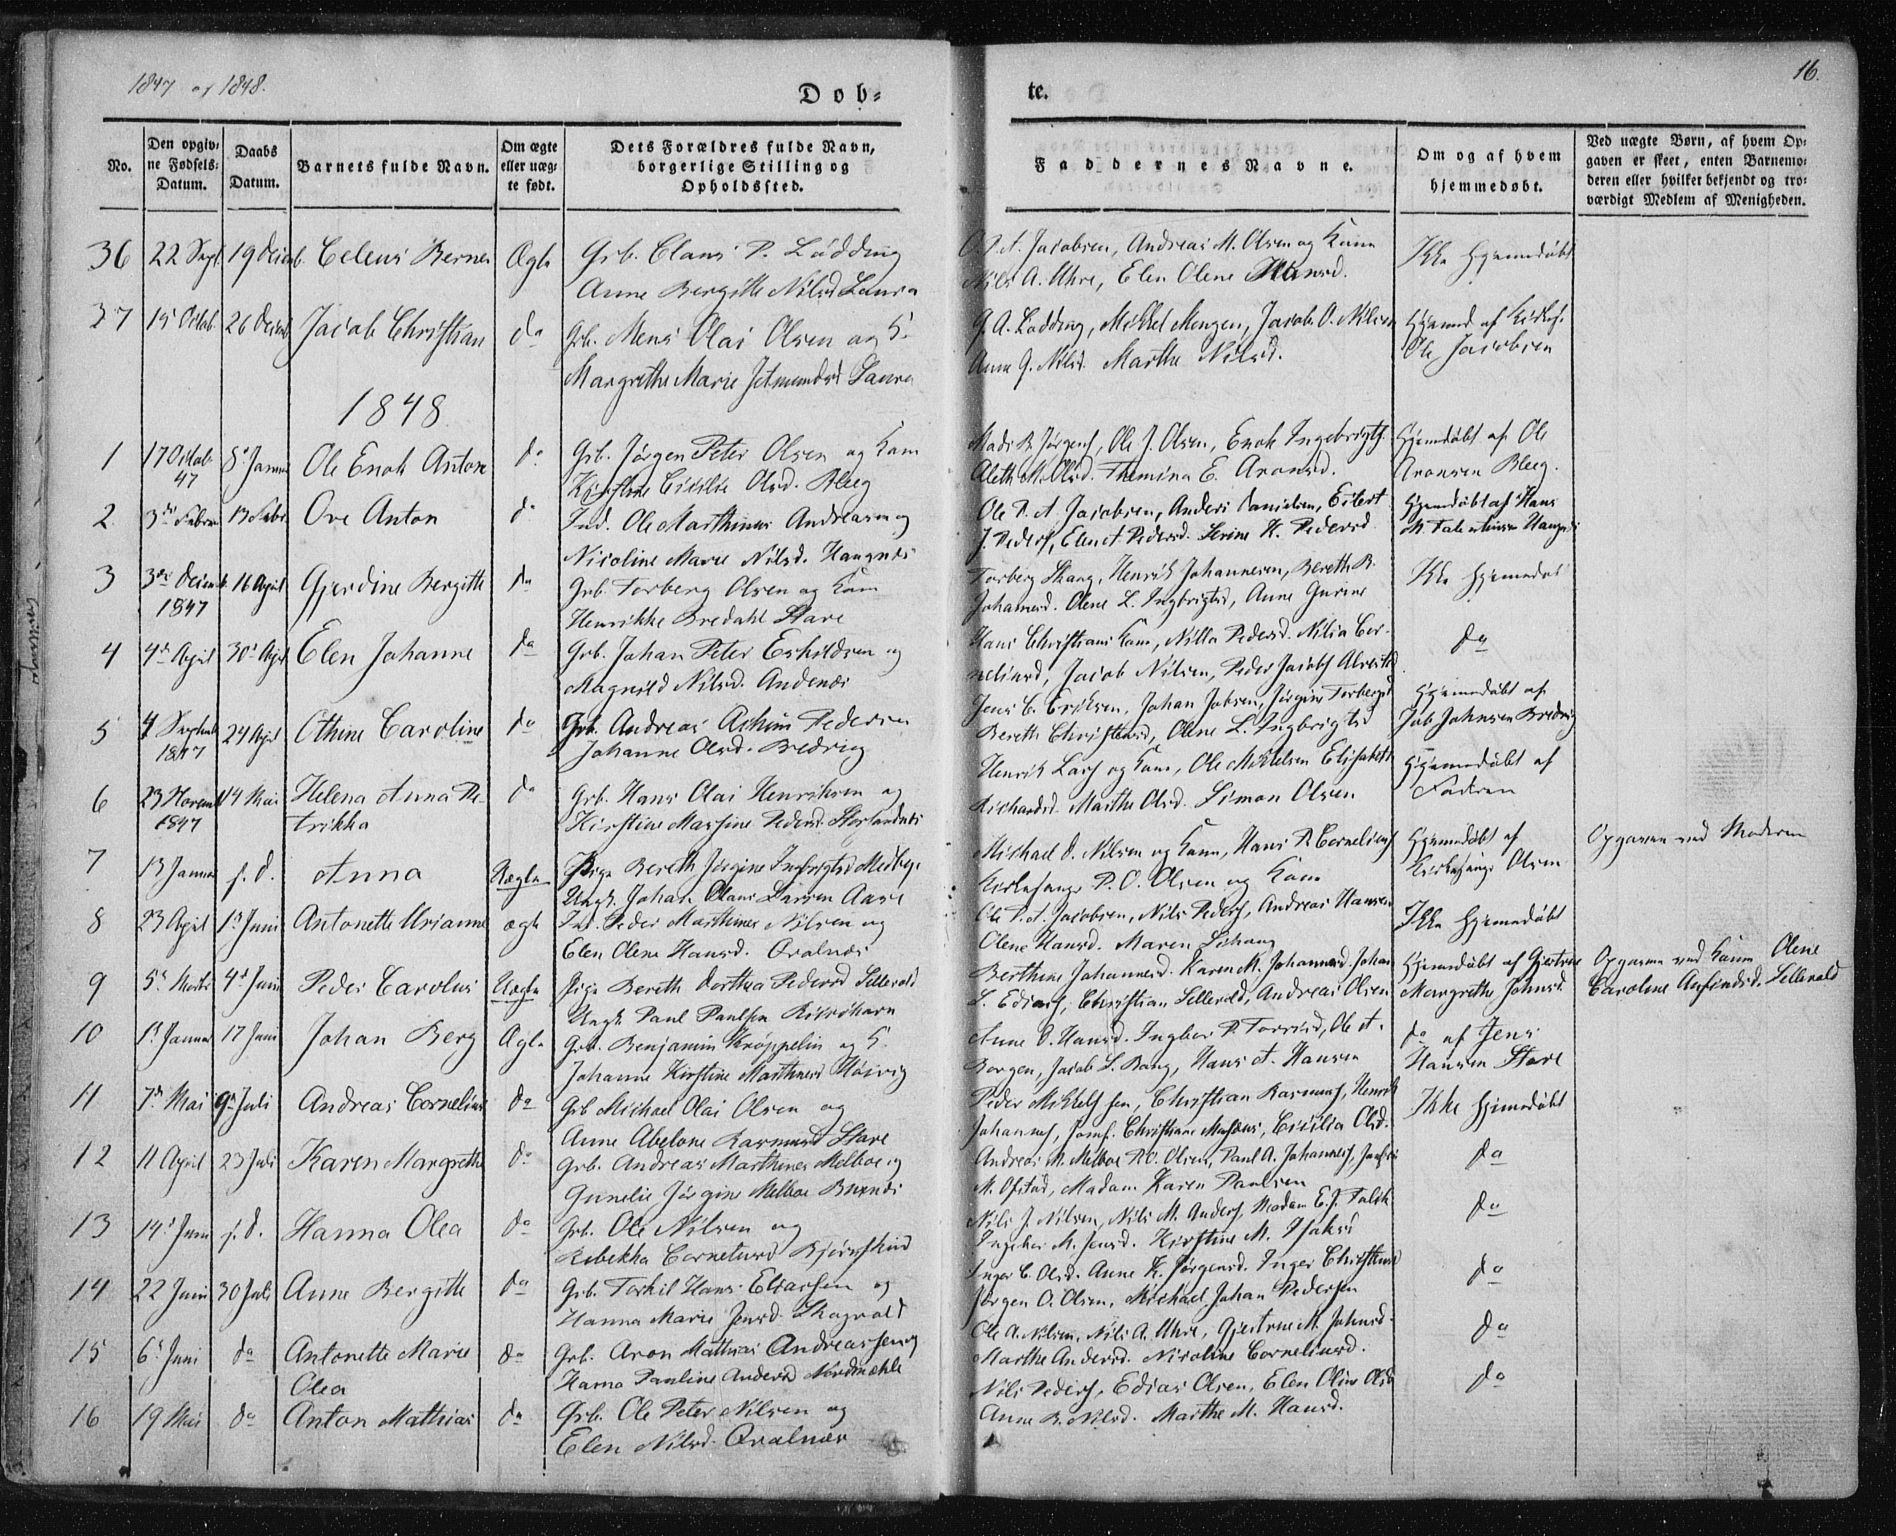 1847 og 1848.
Dob=
te.
16.
No.
Den opgiv=
ne Fødsels=
Datum.
Daabs
Datum.
Barnets fulde Navn.
Om ægte
eller uæg=
te født.
Dets Forældres fulde Navn,
borgerlige Stilling og
Opholdssted.
Faddernes Navne.
Om og af hvem
hjemmedøbt.
Ved uægte Børn, af hvem Op=
gaven er skeet, enten Barnemo=
deren eller hvilket bekjendt og tro=
værdigt Medlem af Menigheden.
36 22 Sept. 19 Decemb. Celeus Berner Ægte Grb. Claus P. Lødding
Anne Bergitte Nilsd Laura
O. P. A. Jacobsen, Andreas M. Olsen og Kone
Nils A. Uhre, Elen Olene Hansd.
Ikke Hjemmedøbt
37 15 Octob. 26 Decemb Jacob Christian do Grb. Mens Olai Olsen og K.
Margrethe Marie Jetmundsd Laura
G. A. Lødding, Mikkel Mengen, Jacob O. Nilsen
Anne G. Nilsd. Marthe Nilsd.
Hjemmed af Kirkes.
Ole Jacobsen
1848
1 17 Octob. 47 8de Januar Ole Enok Anton do Grb. Jørgen Peter Olsen og Kone
Kirstine Cicilie Olsd. Bleeg
Mads R. Jørgens., Ole J. Olsen, Enok Ingebrigts.
Aleth M. Olsd. Themina E. Aronsd.
Hjemdøbt af Ole
Aronsen Bleeg.
2. 3de Febru 13 Febr. Ove Anton do Ind. Ole Marthinus Andreasen og
Nicoline Marie Nilsd. Haugnes
Ole P. A. Jacobsen, Anders Danielsen, Eilert
J. Peders, Elen A. Pedersd. Serine K. Pedersd
Hjemdøbt af Hans
M. Falentinsen Haugnes
3 3de Decemb. 1847 16 April Gjerdine Bergitte do Grb. Torberg Olsen og Kone
Henrikke Bredahl Stave
Torberg Skaug, Henrik Johannesen, Bereth B.
Johannesd. Olene L. Ingbrigtsd, Anne Gurine
Ikke Hjemmedøbt
4 4de April 30te April Elen Johanne do Grb. Johan Peter Eskildsen og
Magnild Nilsd. Andenæs
Hans Christians Kone, Nilla Pedersd. Nilia Cor-
neliusd, Jacob Nilsen, Peder Jacobs Alvestad
do
5 4 Septemb 1847 24 April Othine Caroline do Grb. Andreas Achim Pedersen
Johanne Olsd. Bredvig
Jens C. Eriksen, Johan Jobsen, Jørgine Torbergsd
Bereth Christensd, Olene L. Ingbrigtsd
Hjemmedøbt af
Job Johnsen Bredvig
6 23 Novemb 1847 14 Mai Helena Anna Pe-
trikka do Grb. Hans Olai Henriksen og
Kirstine Massine Pedersd. Storlandnæs
Henrik Lars. og Kone, Ole Mikkelsen Elisabeth
Richardsd. Marthe Olsd. Simon Olsen
Hjemmedøbt af
Faderen
7 13 Januar s. d. Anna Uægte Pige Bereth Jørgine Ingbrigtsd Medby.
Ungk. Johan Olaus Larsen Aase
Michael O. Nilsen og Kone, Hans P. Cornelius.
Kirkesanger P. O. Olsen og Kone
Hjemmedøbt af
Kirkesanger Olsen
Opgaven ved Moderen
8 23 April 1ste Juni Antonette Urianne ægte Ind. Peder Marthinus Nilsen og
Elen Olene Hansd. Qvalnæs
Ole P. A. Jacobsen, Nils Peders, Andreas Hansen
Olene Hansd. Maren Schang
Ikke Hjemmedøbt
9 5te Marts 4de Juni Peder Carolus Uægte Pige Bereth Dorthea Pedersd Sellevold
Ungk. Paul Paulsen Risøehavn
Berthine Johannesd. Karen M. Johannesd. Johan
L. Edias., Christian Sellevold, Andreas Olsen
Hjemdøbt af Gjertrue
Margrethe Johnsd.
Opgaven ved Konen Olene
Caroline Anfindsd. Sellevold
10 1ste Januar 17 Juni Johan Berg Ægte Grb. Benjamin Krøppelin og K.
Johanne Kirstine Marthinesd Høivig
Anne O. Hansd. Ingbor P. Torrisd, Ole A.
Borgen, Jacob L. Bang, Hans A. Hansen
do af Jens
Hansen Stave
11 7de Mai 9de Juli Andreas Cornelius do Grb Michael Olai Olsen og
Anne Abelone Rasmusd Stave
Peder Mikkelssen, Christian Rasmus, Henrik
Johannes, Jomf. Christiane Musæus, Cicilia Olsd.
Ikke Hjemmedøbt
12 11 April 23 Juli Karen Margrethe do Grb. Andreas Marthinus Melboe og
Gunelie Jørgine Melboe Buknæs
Andreas M. Melboe P. O. Olsen, Paul A. Johannes., Jomfru
M. Ofstad, Madam Karen Paulsen
do
13 14de Juni s. d. Hanna Olea do Grb. Ole Nilsen og
Rebekka Corneliusd Bjørnskind
Nils J. Nilsen, Nils M. Anders., Madam E. J. Falck
Ingebor M. Jensd. Kirstine M. Isaksd
do
14 22 Juni 30 Juli Anne Bergitte do Grb. Torkil Hans Eliassen og
Hanna Marie Jensd. Skogvold
Inger C. Olsd. Anne K. Jørgensd. Inger Christensd
Jørgen O. Olsen, Michael Johan Pedersen
do
15 6te Juni do Antonette Marie
Olea do Grb. Aron Mathias Andreassen og
Hanna Pauline Andersd Nordmæhle
Ole A. Nilsen, Nils A. Uhre, Gjertrue M. Johnsd.
Marthe Andersd. Nicoline Corneliusd.
do
16 19 Mai do Anton Mathias do Grb. Ole Peter Nilsen og
Elen Nilsd. Qvalnæs
Nils Peders, Edias Olsen, Elen Oline Olsd
Anne B. Nilsd. Marthe M. Hansd.
do